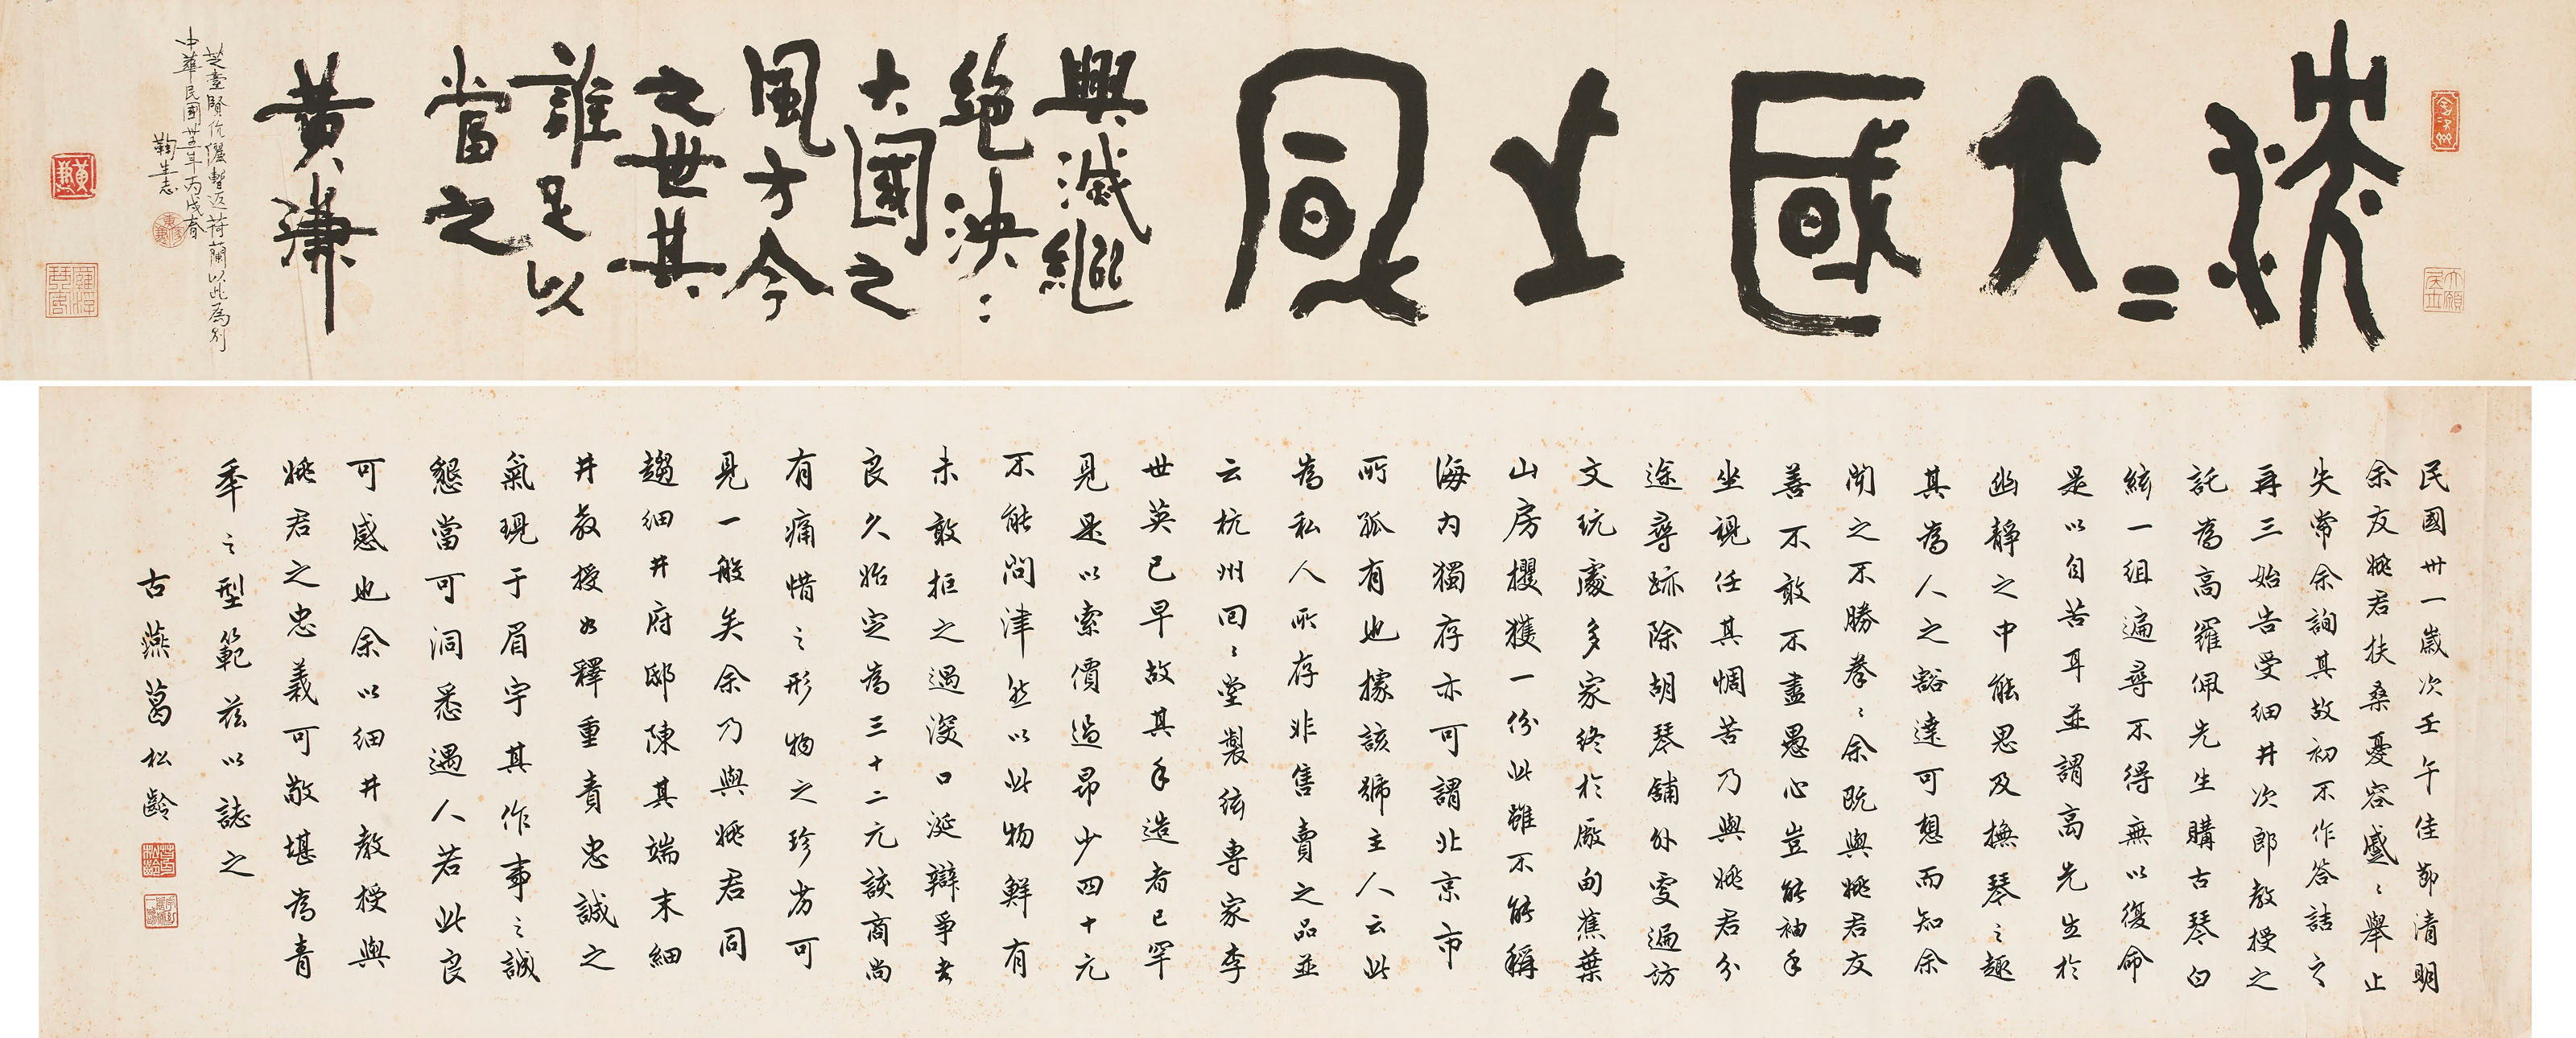 泱〻大國之風
興滅繼
絕泱〻
大國之
風方今
之世其
誰足以
當之
黃濂
芝臺賢伉儷暫返荷蘭以此為別
中華民國卅五年丙戌春
鞠生志
民國卅一歲次壬午佳節清明
余友姚君扶桑憂容蹙〻舉止
失常余詢其故初不作答詰之
再三始告受細井次郎教授之
託為高羅佩先生購古琴白
絃一組遍尋不得無以復命
是以自苦耳並謂高先生於
幽靜之中能思及撫琴之趣
其為人之豁達可想而知余
聞之不勝拳〻余既與姚君友
善不敢不盡愚心豈能袖手
坐視任其惆苦乃與姚君分
途尋跡除胡琴舖外更遍訪
文玩處多家終於廠甸蕉葉
山房攫獲一份此雖不能稱
海內獨存亦可謂北京市
所孤有也據該號主人云此
為私人所存非售賣之品並
云杭州回〻堂製絃專家李
世英已早故其手造者已罕
見是以索價過昂少四十元
不能問津然以此物鮮有
未敢拒之過深口涎辯爭者
良久始定為三十二元該商尚
有痛惜之形物之珍劣可
見一般矣余乃與姚君同
趨細井府邸陳其端末細
井教授如釋重責忠誠之
氣現于眉宇其作事之誠
懇當可洞悉遇人若此良
可感也余以細井教授與
姚君之忠義可敬堪為青
年之型範茲以誌之
古燕葛松齡